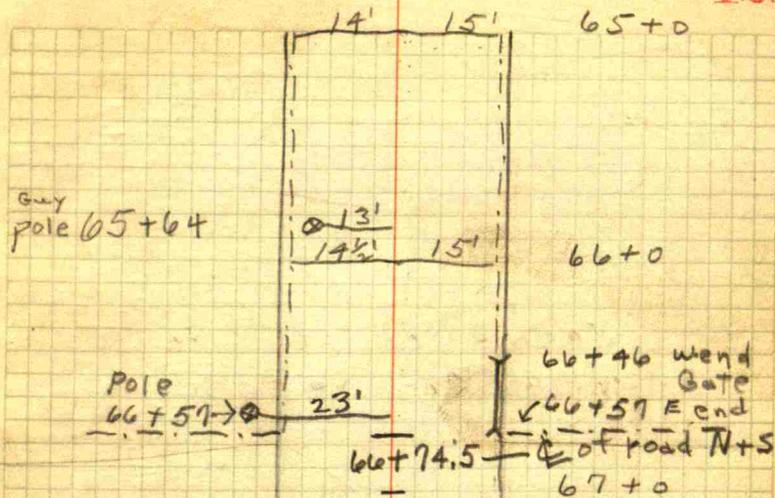 14' 15' 65+0
Guy
pole 65+64
13'
14½' 15' 66+0
66+46 W end
Gate
Pole
66+57
23'
66+57 E end
66+74.5 ℄ of road N+S
67+0